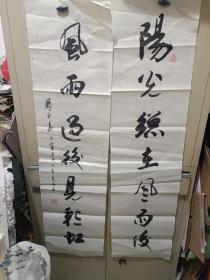 陽光總在風雨後
風雨過後見彩虹